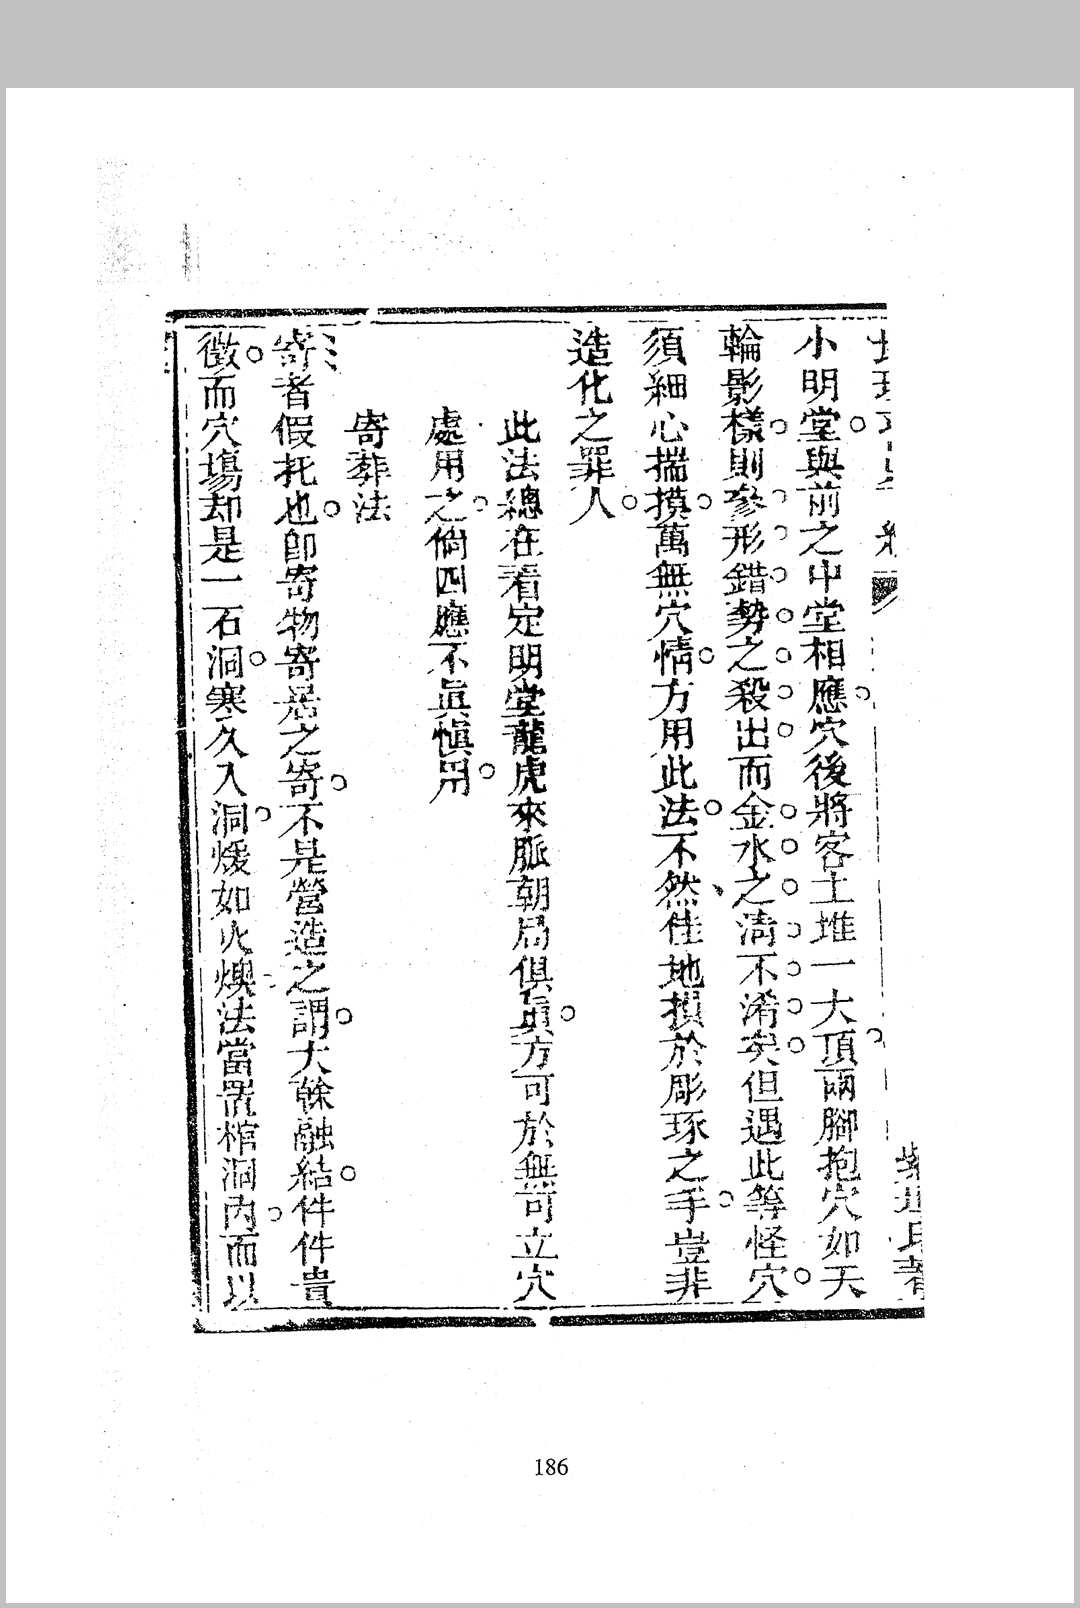 小明堂與前之中堂相應穴後將客土堆一大頂兩腳抱穴如天
輪影樣則參形錯勢之殺出而金水之清不淆矣但遇此等怪穴
須細心揣摸萬無穴情方用此法不然佳地損於彫琢之手豈非
造化之罪人
此法總在看定明堂龍虎來脈朝局俱真方可於無可立穴
處用之倘四應不眞慎用
寄葬法
寄者假托也卽寄物寄居之寄不是營造之謂大餘融結件件貴
徵而穴塲却是一石洞寒久入洞煖如火燠法當置棺洞內而以
186